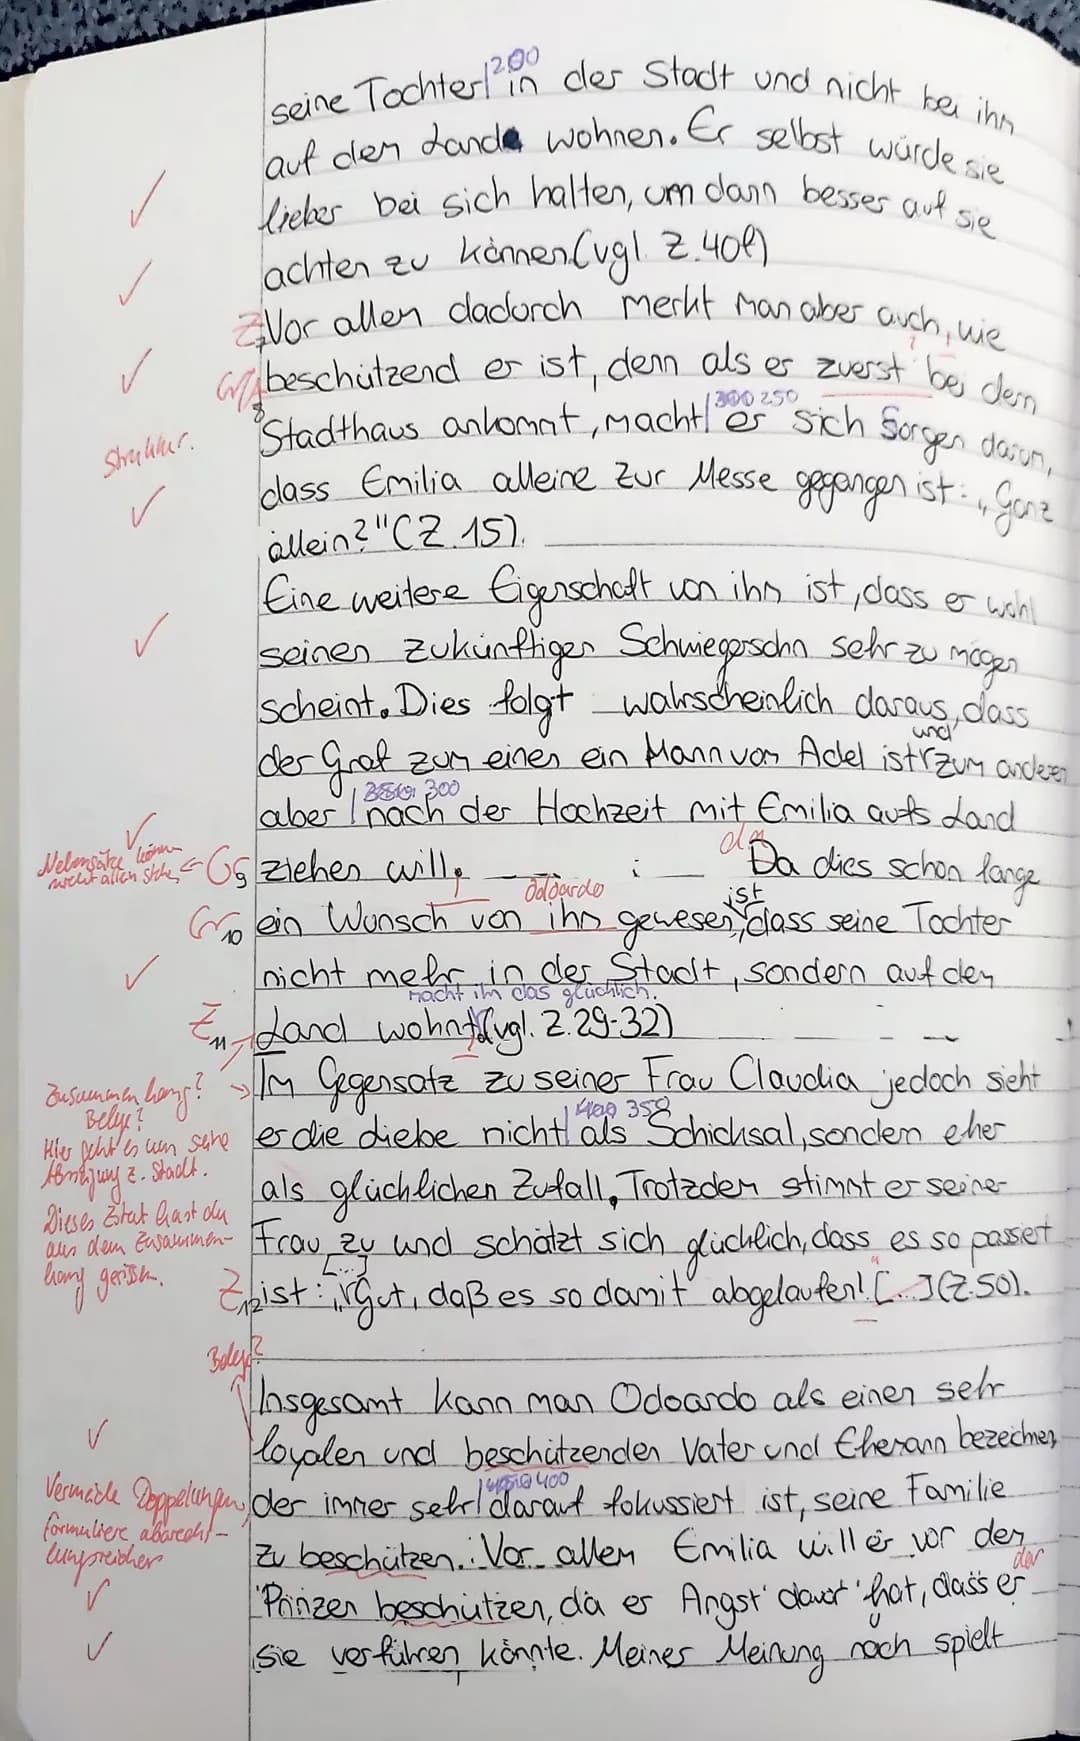 seine Tochter| 200 in der Stadt und nicht bei ihm
auf dem Lande wohnen. Er selbst würde sie
lieber bei sich halten, um dann besser auf sie
achten zu können (vgl. Z. 40f)
Z Vor allem dadurch merkt man aber auch, wie
beschützend er ist, denn als er zuerst bei dem
300 250
Struktur.
Stadthaus ankommt, macht| er sich Sorgen darum,
dass Emilia alleine zur Messe gegangen ist: „Ganz
allein?" (Z. 15).
Eine weitere Eigenschaft von ihm ist, dass er wohl
seinen zukünftigen Schwiegersohn sehr zu mögen
scheint. Dies folgt wahrscheinlich daraus, dass
und
der Graf zum einen ein Mann von Adel ist zum anderen
350 300
aber | nach der Hochzeit mit Emilia aufs Land
Nebensätze können
nicht allein stehen
G5 ziehen will, da Da dies schon lange
Odoardo ist
Gr10 ein Wunsch von ihm gewesen, dass seine Tochter
nicht mehr in der Stadt, sondern auf dem
macht ihn das glücklich.
Z11 Land wohnt (vgl. Z. 29-32)
Zusammenhang?
Belege?
Hier geht es um seine
Abneigung z. Stadt.
Dieses Zitat hast du
aus dem Zusammen-
hang gerissen.
Im Gegensatz zu seiner Frau Claudia jedoch sieht
400 350
er die Liebe nicht| als Schicksal, sondern eher
als glücklichen Zufall, Trotzdem stimmt er seiner
Frau zu und schätzt sich glücklich, dass es so passiert
[...]
Z12 ist: „Gut, daß es so damit abgelaufen! [...] (Z. 50).
Beleg?
Insgesamt kann man Odoardo als einen sehr
loyalen und beschützenden Vater und Ehemann bezeichnen,
400
Vermeide Doppelungen,
formuliere abwechs-
lungsreicher
der immer sehr| darauf fokussiert ist, seine Familie
zu beschützen. Vor allem Emilia will er vor dem
der
Prinzen beschützen, da er Angst davor hat, dass er
sie verführen könnte. Meiner Meinung nach spielt